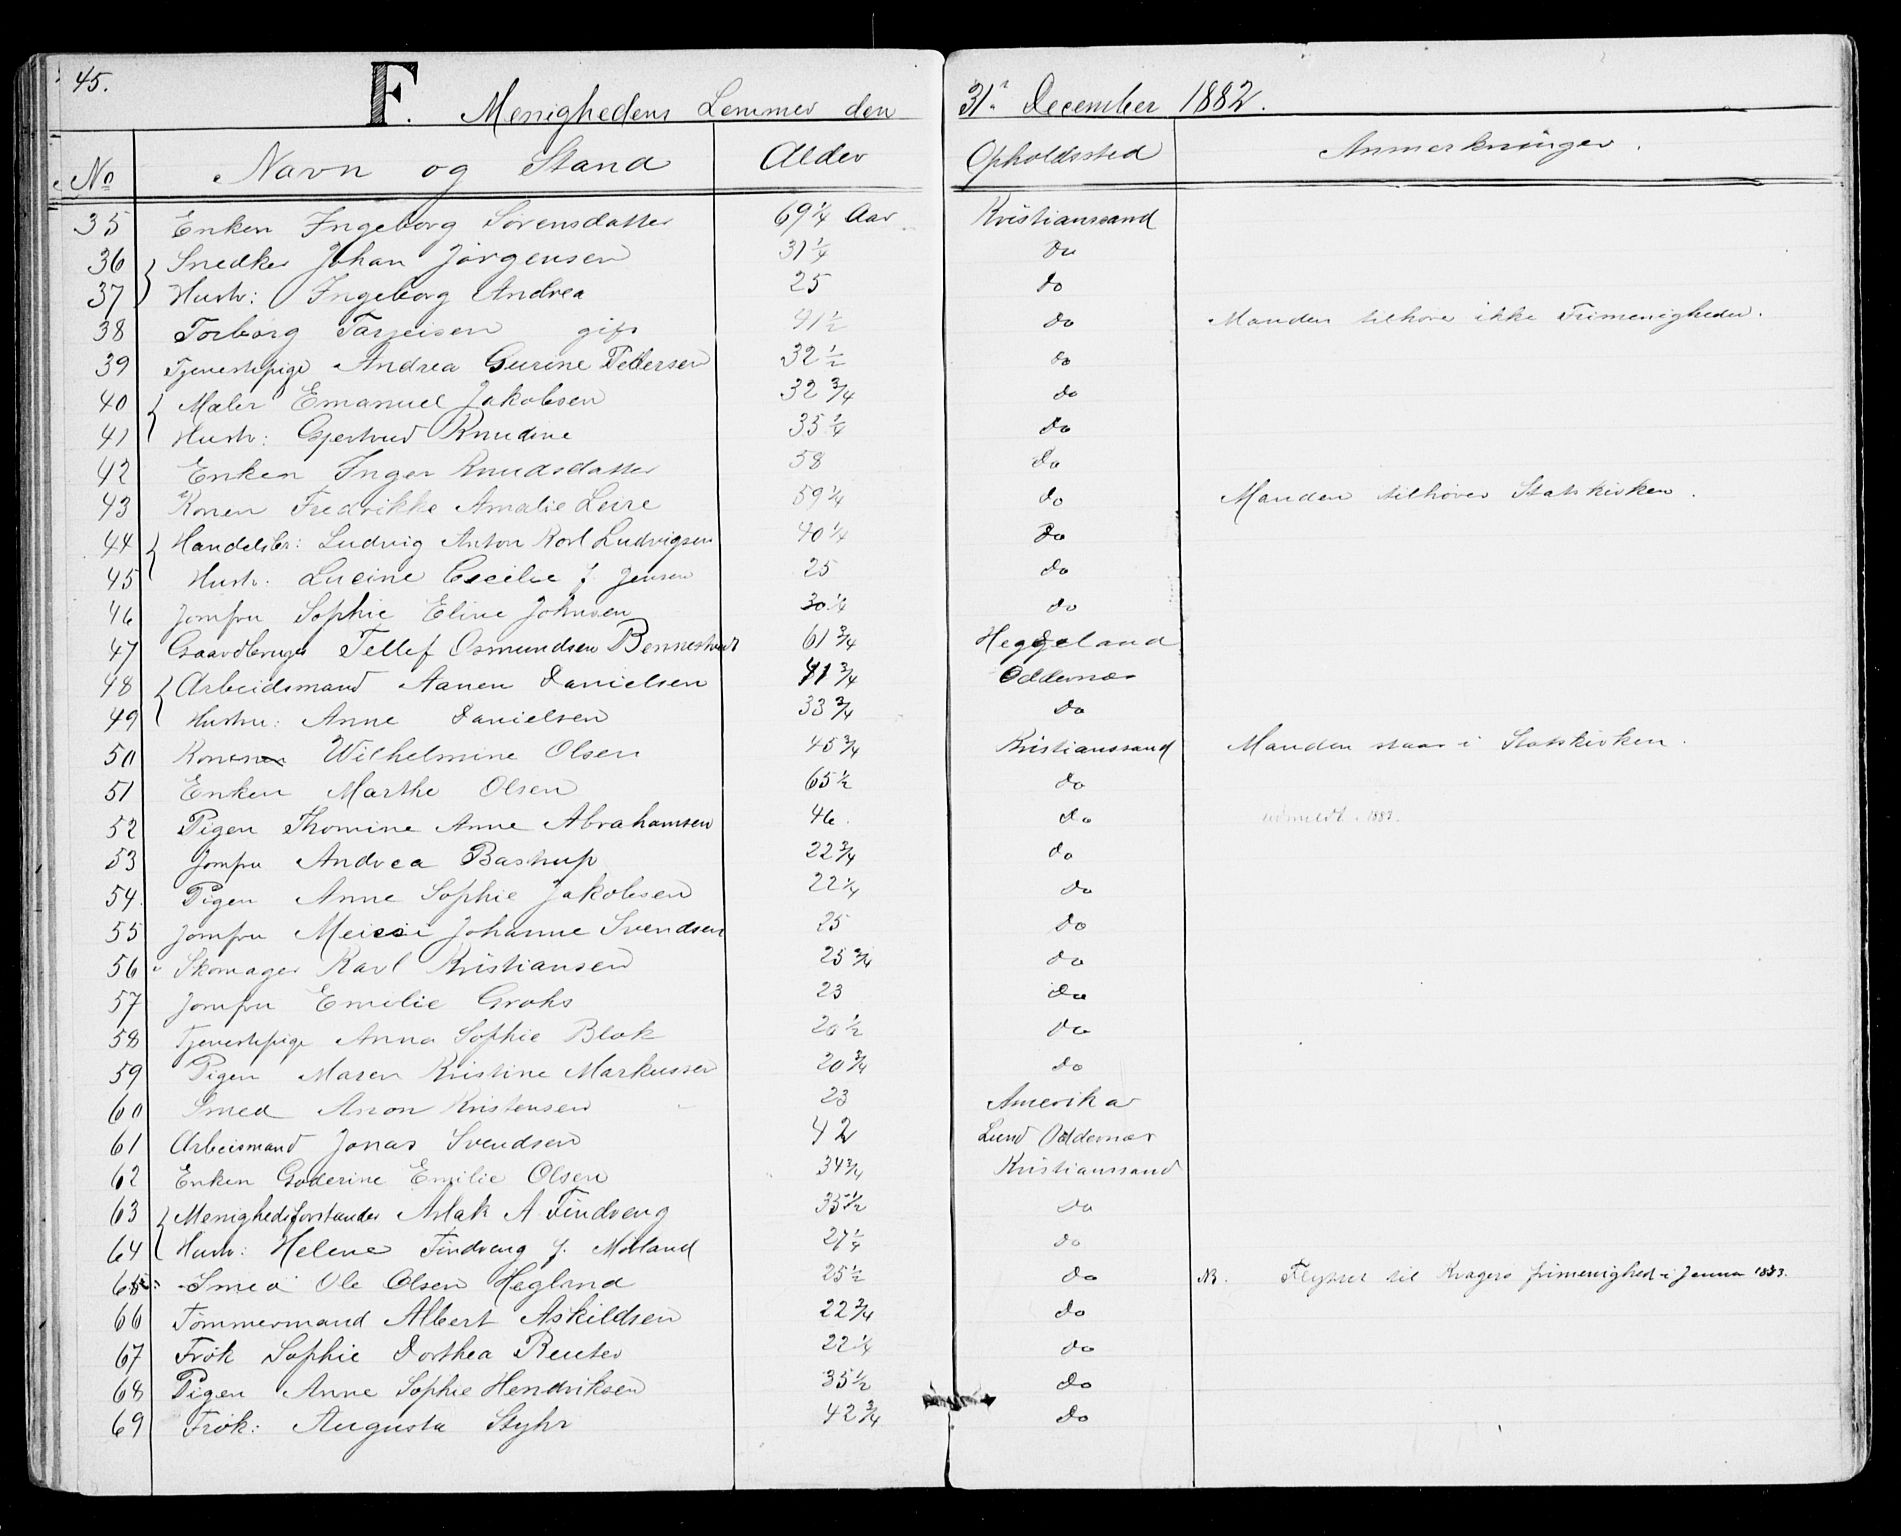 45.
F. Menighedens Lemmer den 31. December 1882.
No Navn og Stand Alder Opholdssted Anmerkninger.
35 Enken Ingeborg Sørensdatter 69 1/4 Aar Kristianssand
36 Snedker Johan Jørgensen 31 1/4 do
37 Hustr: Ingeborg Andrea 25 do
38 Torborg Tarjeisen gift 41 1/2 do Manden tilhøre ikke Frimenigheden.
39 Tjenestepige Andrea Gurine Pettersen 32 1/2 do
40 Maler Emanuel Jakobsen 32 3/4 do
41 Hustr: Gjertrud Knudine 35 1/4 do
42 Enken Inger Knudsdatter 58 do
43 Konen Fredrikke Amalie Leire 59 1/4 do Manden tilhører Statskirken.
44 Handelsbr: Ludvig Anton Karl Ludvigsen 40 1/4 do
45 Hustr: Lucine Cecilie f. Jensen 25 do
46 Jomfru Sophie Eline Johnsen 30 1/4 do
47 Gaardbruger Tellef Osmundsen 61 3/4 Heggeland
48 Arbeidsmand Aanen Danielsen 41 3/4 Oddernæs
49 Hustru: Anne Danielsen 33 3/4 do
50 Konen Wilhelmine Olsen 45 3/4 Kristianssand Manden staar i Statskirken.
51 Enken Marthe Olsen 65 1/2 do
52 Pigen Thomine Anne Abrahamsen 46. do udmeldt
53 Jomfru Andrea Bastrup 22 3/4 do
54. Pigen Anne Sophie Jakobsen 22 1/4 do
55 Jomfru Johanne Svendsen 25 do
56 Skomager Karl Kristiansen 25 3/4 do
57 Jomfru Emilie Grohs 23 do
58 Tjenestepige Anna Sophie Blok 20 1/2 do
59 Pigen Maren Kristine Markussen 20 3/4 do
60 Smed Anon Kristensen 23 Amerika
61 Arbeismand Jonas Svendsen 42 Lund Oddernæs
62 Enken Goderine Emilie Olsen 34 3/4 Kristianssand
63 Menighedsforstander Aslak A Tindveng 35 1/2 do
64 Hustr: Helene Tindveng f. Morland 27 1/4 do
65 Smed Ole Olsen Hegland 25 1/2 do NB. Flyttet til Kragerø frimenighed i Januar 1883.
66 Tømmermand Albert Askildsen 22 3/4 do
67 Frøk Sophie Dorthea Reuter 22 1/4 do
68 Pigen Anne Sophie Hendriksen 35 1/2 do
69 Frøk: Augusta Styhr 42 3/4 do